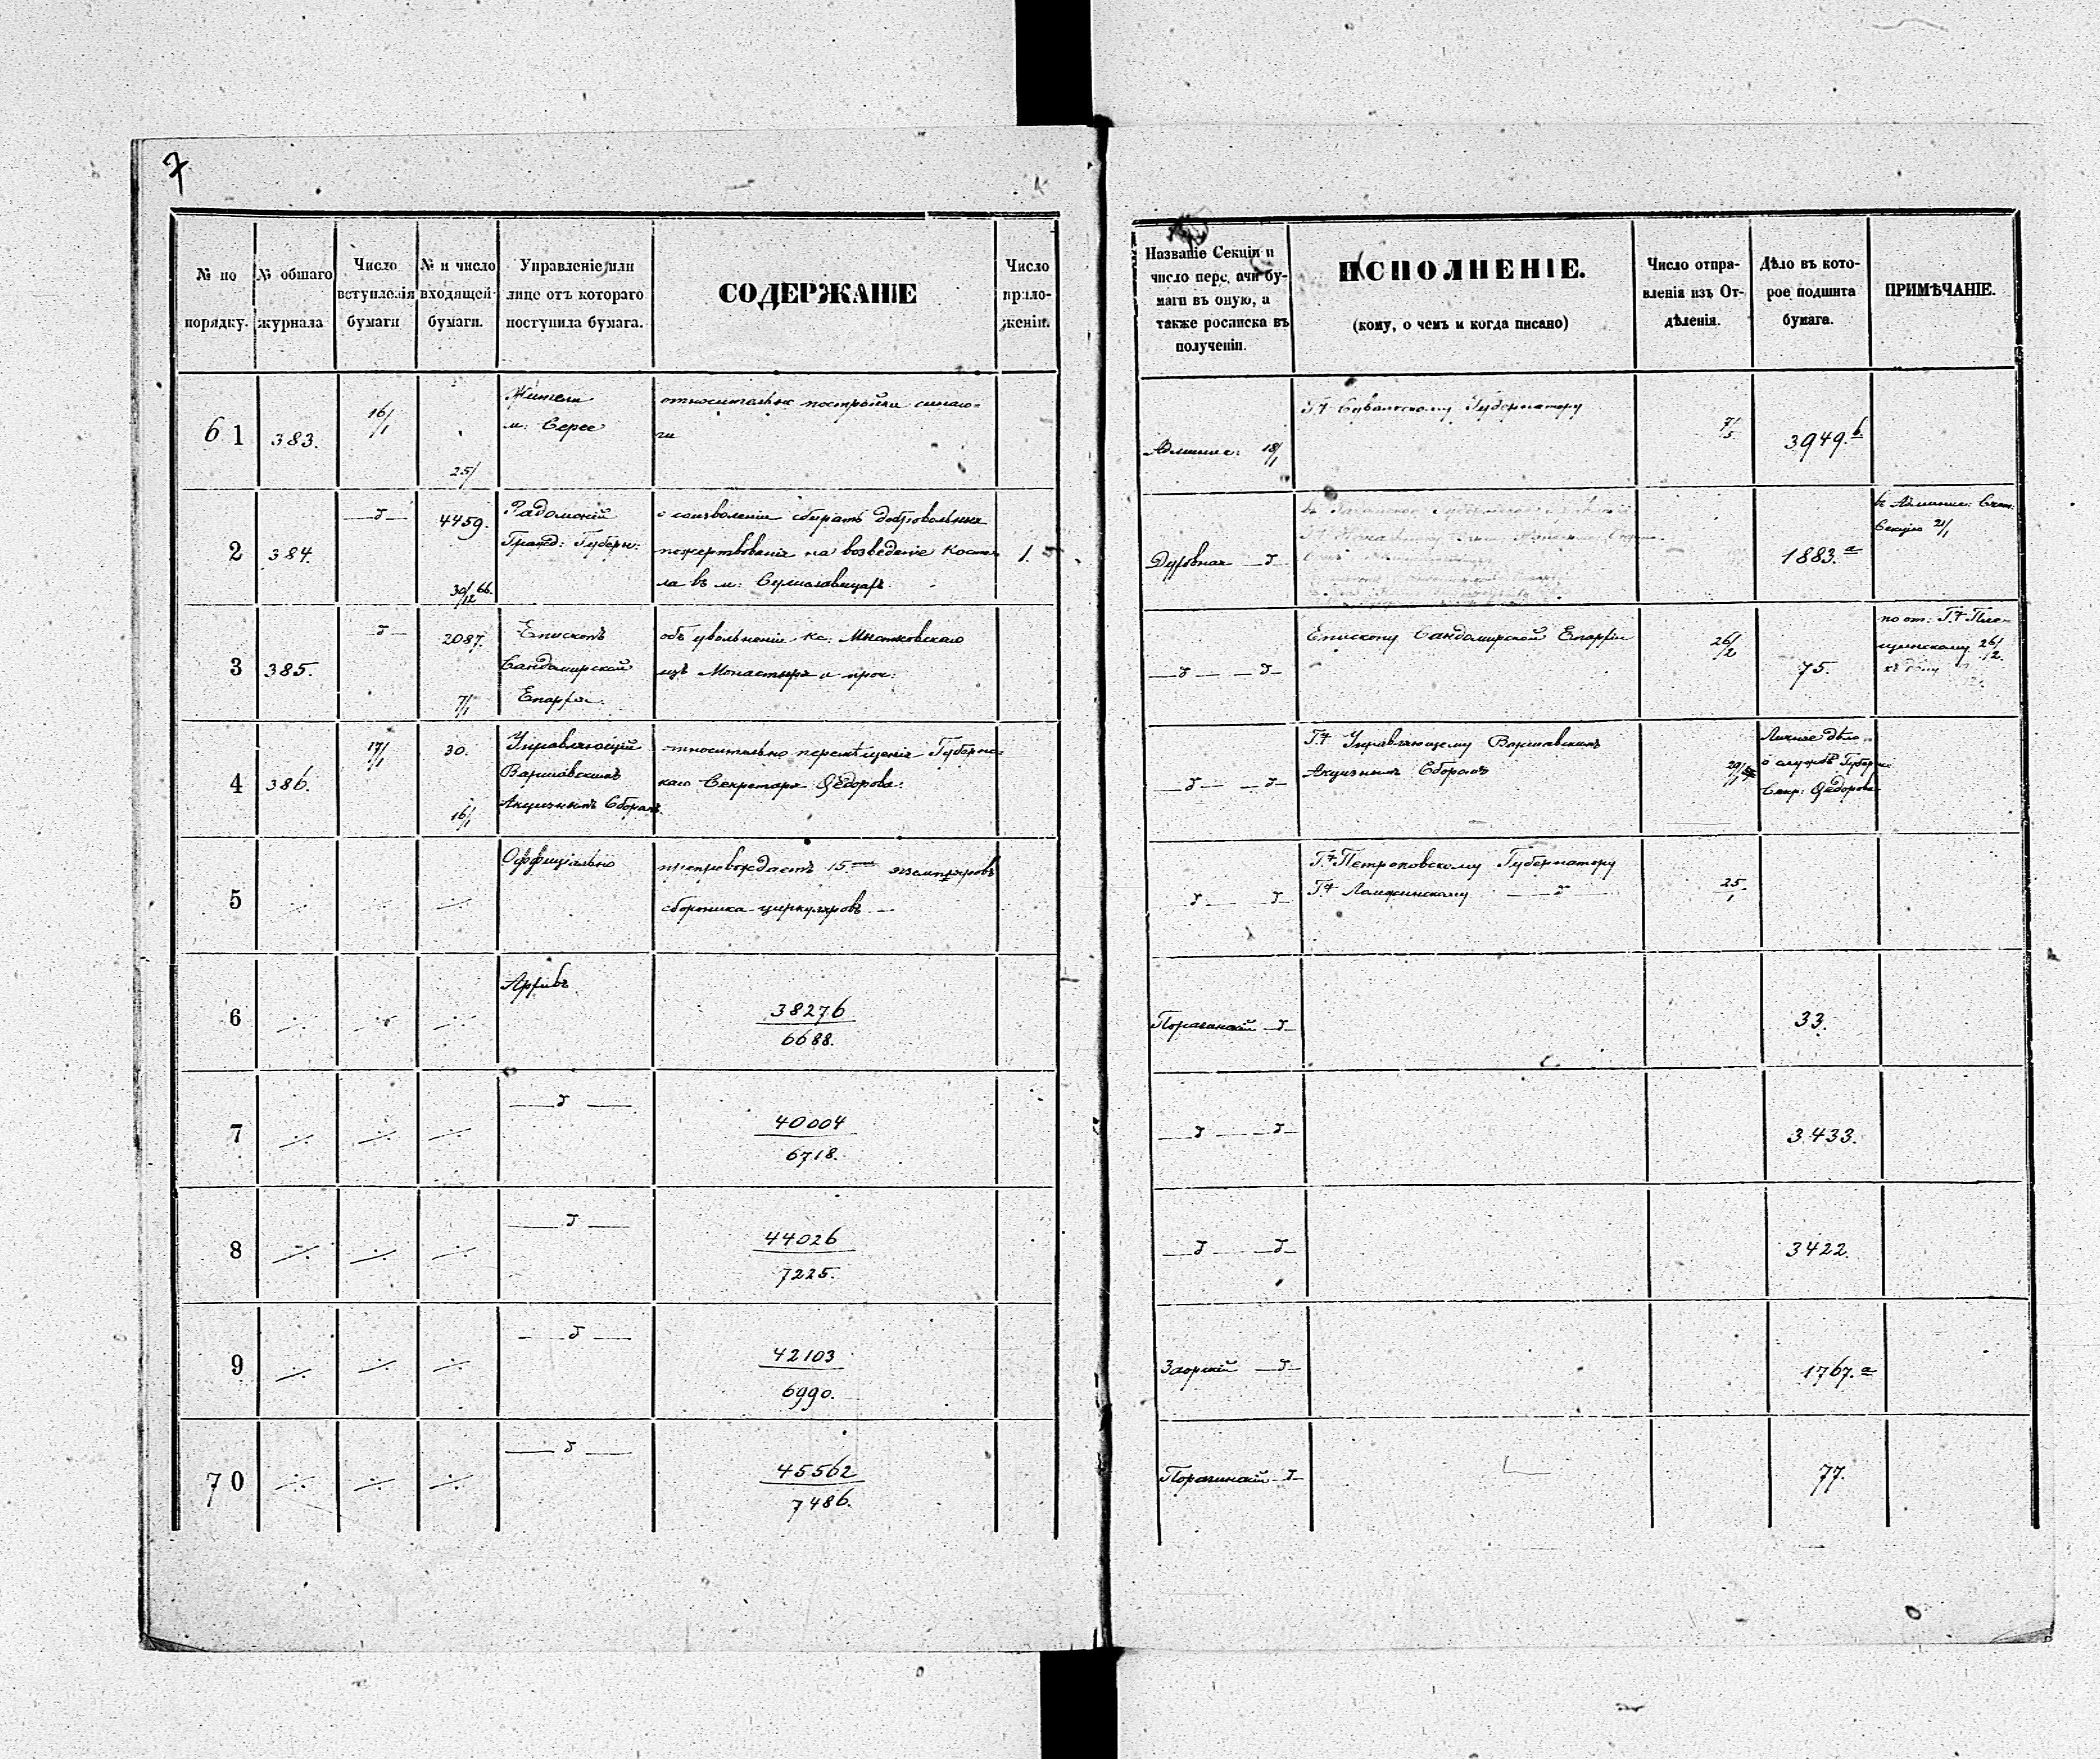 7
№ по порядку.
№ общаго журнала
Число вступленія бумаги
№ и число входящей бумаги.
Управленіе или лице отъ котораго поступила бумага.
СОДЕРЖАНІЕ
Число приложеній.
Названіе Секціи и число передачи бумаги въ оную, а также росписка въ полученіи.
ИСПОЛНЕНІЕ.
(кому, о чемъ и когда писано)
Число отправленія изъ Отдѣленія.
Дѣло въ которое подшита бумага.
ПРИМѢЧАНІЕ.
61
383.
16/1
25/
Жители
м: Серее
относительно постройки синаго-
ги
Админис: 18/1
Гну Сувалскому Губернатору
7/5
3949.b
2
384.
—д—
4459.
30/12 66.
Радомскій
Гражд: Губерн:
о соизволеніи сбирать добровольныя
пожертвованія на возведеніе Косте-
ла въ м: Сулиславицахъ.
1.
Духовная —д—
1883.a
въ Админис:
Секцію 21/1
3
385.
—д—
2087.
7/1
Епископъ
Сандомирской
Епархіи.
объ увольненіи кс: Мыстковскаго
изъ Монастыря и проч:
—д— —д—
Епископу Сандомирской Епархіи
26/2
75.
26/2.
4
386.
17/1
30.
16/1
Управляющій
Варшавскимъ
Акцизнымъ Сборамъ.
относительно перемѣщенія Губернс-
каго Секретаря Ѳедорова.
—д— —д—
Гну Управляющему Варшавскимъ
Акцизнымъ Сборомъ
Личное дѣло
о службѣ Губерн
Секр: Ѳедорова
5
Оффиціально
препровождаетъ 15 экземпляровъ
сборника циркуляровъ —
д— д
Гну Петроковскому Губернатору
Гну Ломжинскому —д—
25/1
6
Архивъ
38276
6688.
—д—
33.
7
—д—
40004
6718.
—д— —д—
3433.
8
—д—
44026
7225.
—д— —д—
3422.
9
—д—
42103
6990.
Заорскій —д—
1767.a
70
—д—
45562
7486.
—д—
77.